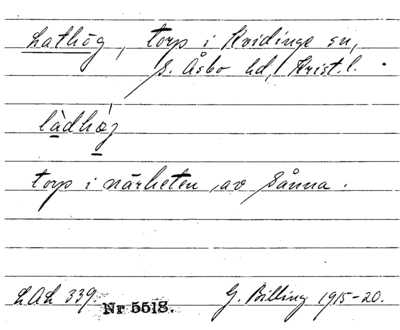 Lathög, torp i Kvidinge sn,
S. Åsbo hd, Krist. l.
làdhǿj
torp i närheten av Sånna.
LAL 339. Nr 5518. G. Billing 1915-20.